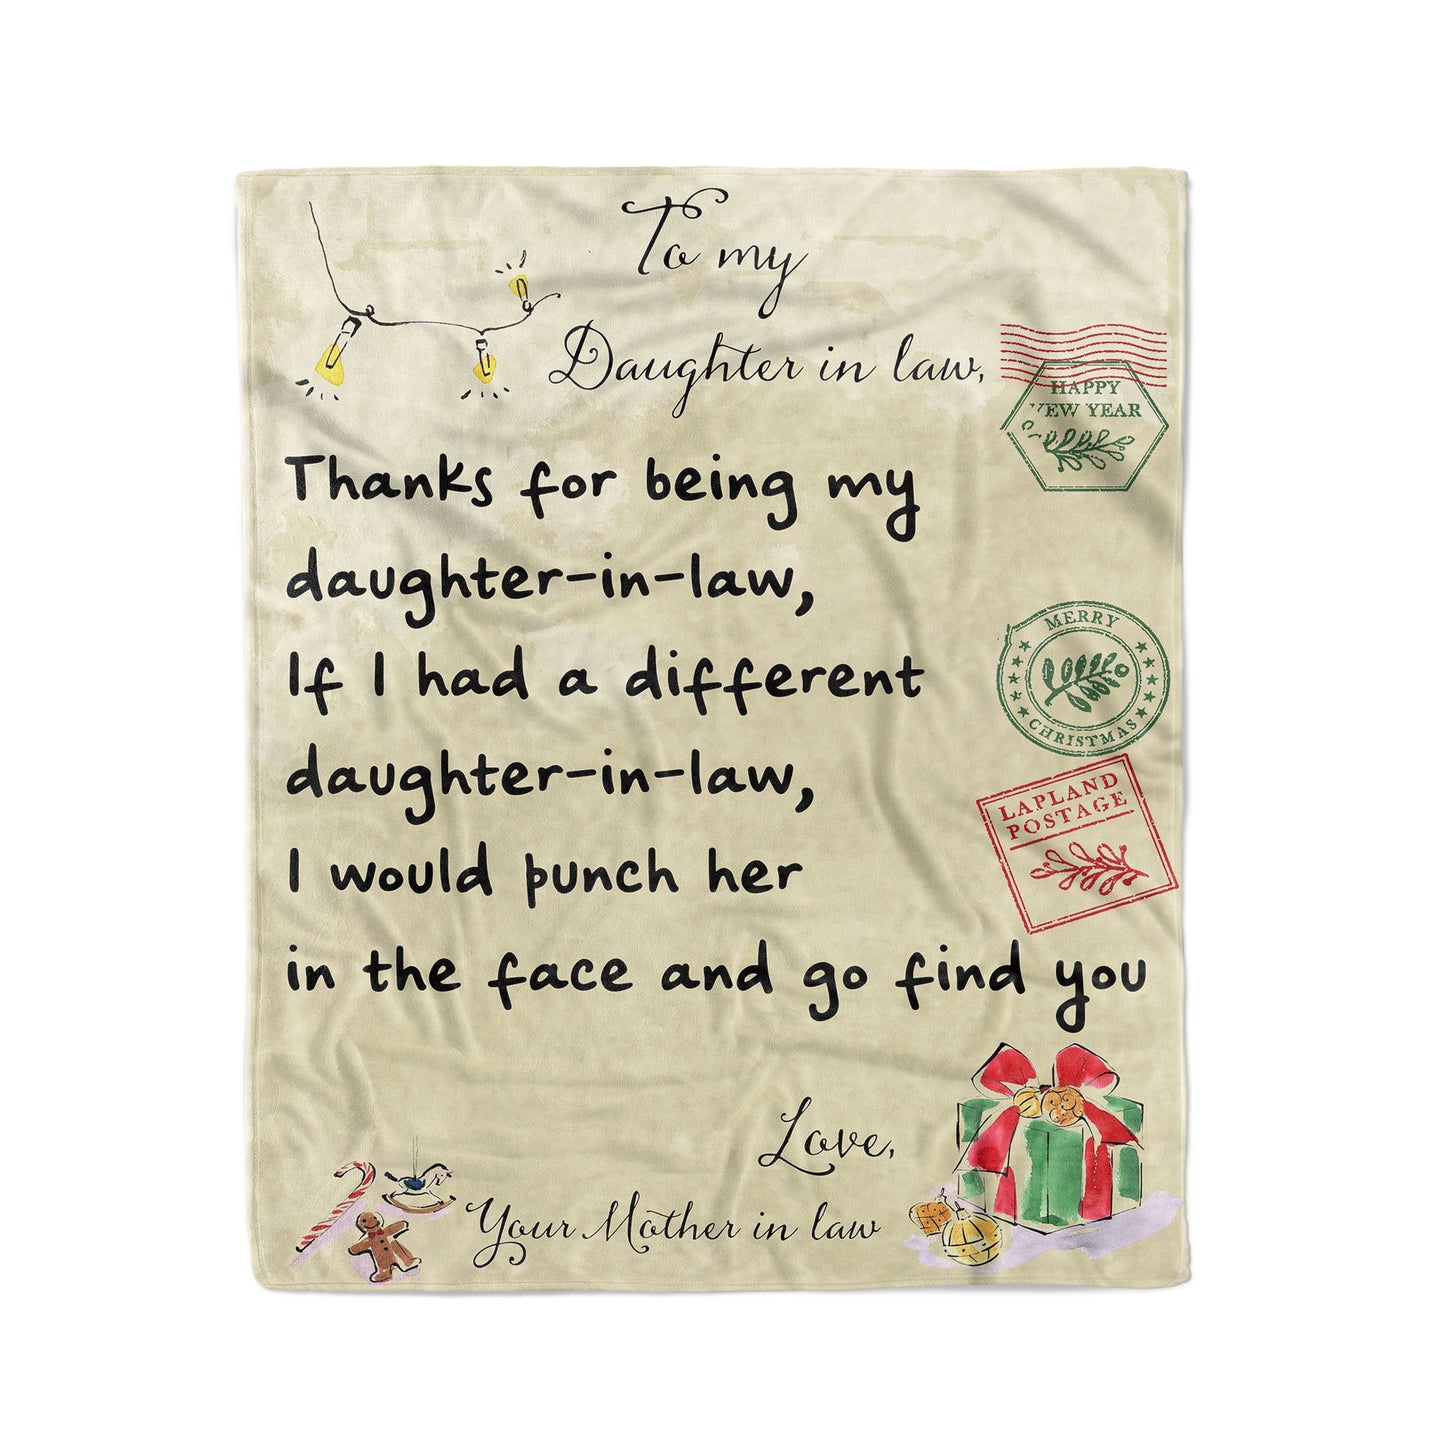 To my
Daughter in law,
HAPPY
NEW YEAR
Thanks for being my
daughter-in-law,
If I had a different
daughter-in-law,
I would punch her
in the face and go find you
MERRY
CHRISTMAS
LAPLAND
POSTAGE
Love,
Your Mother in law